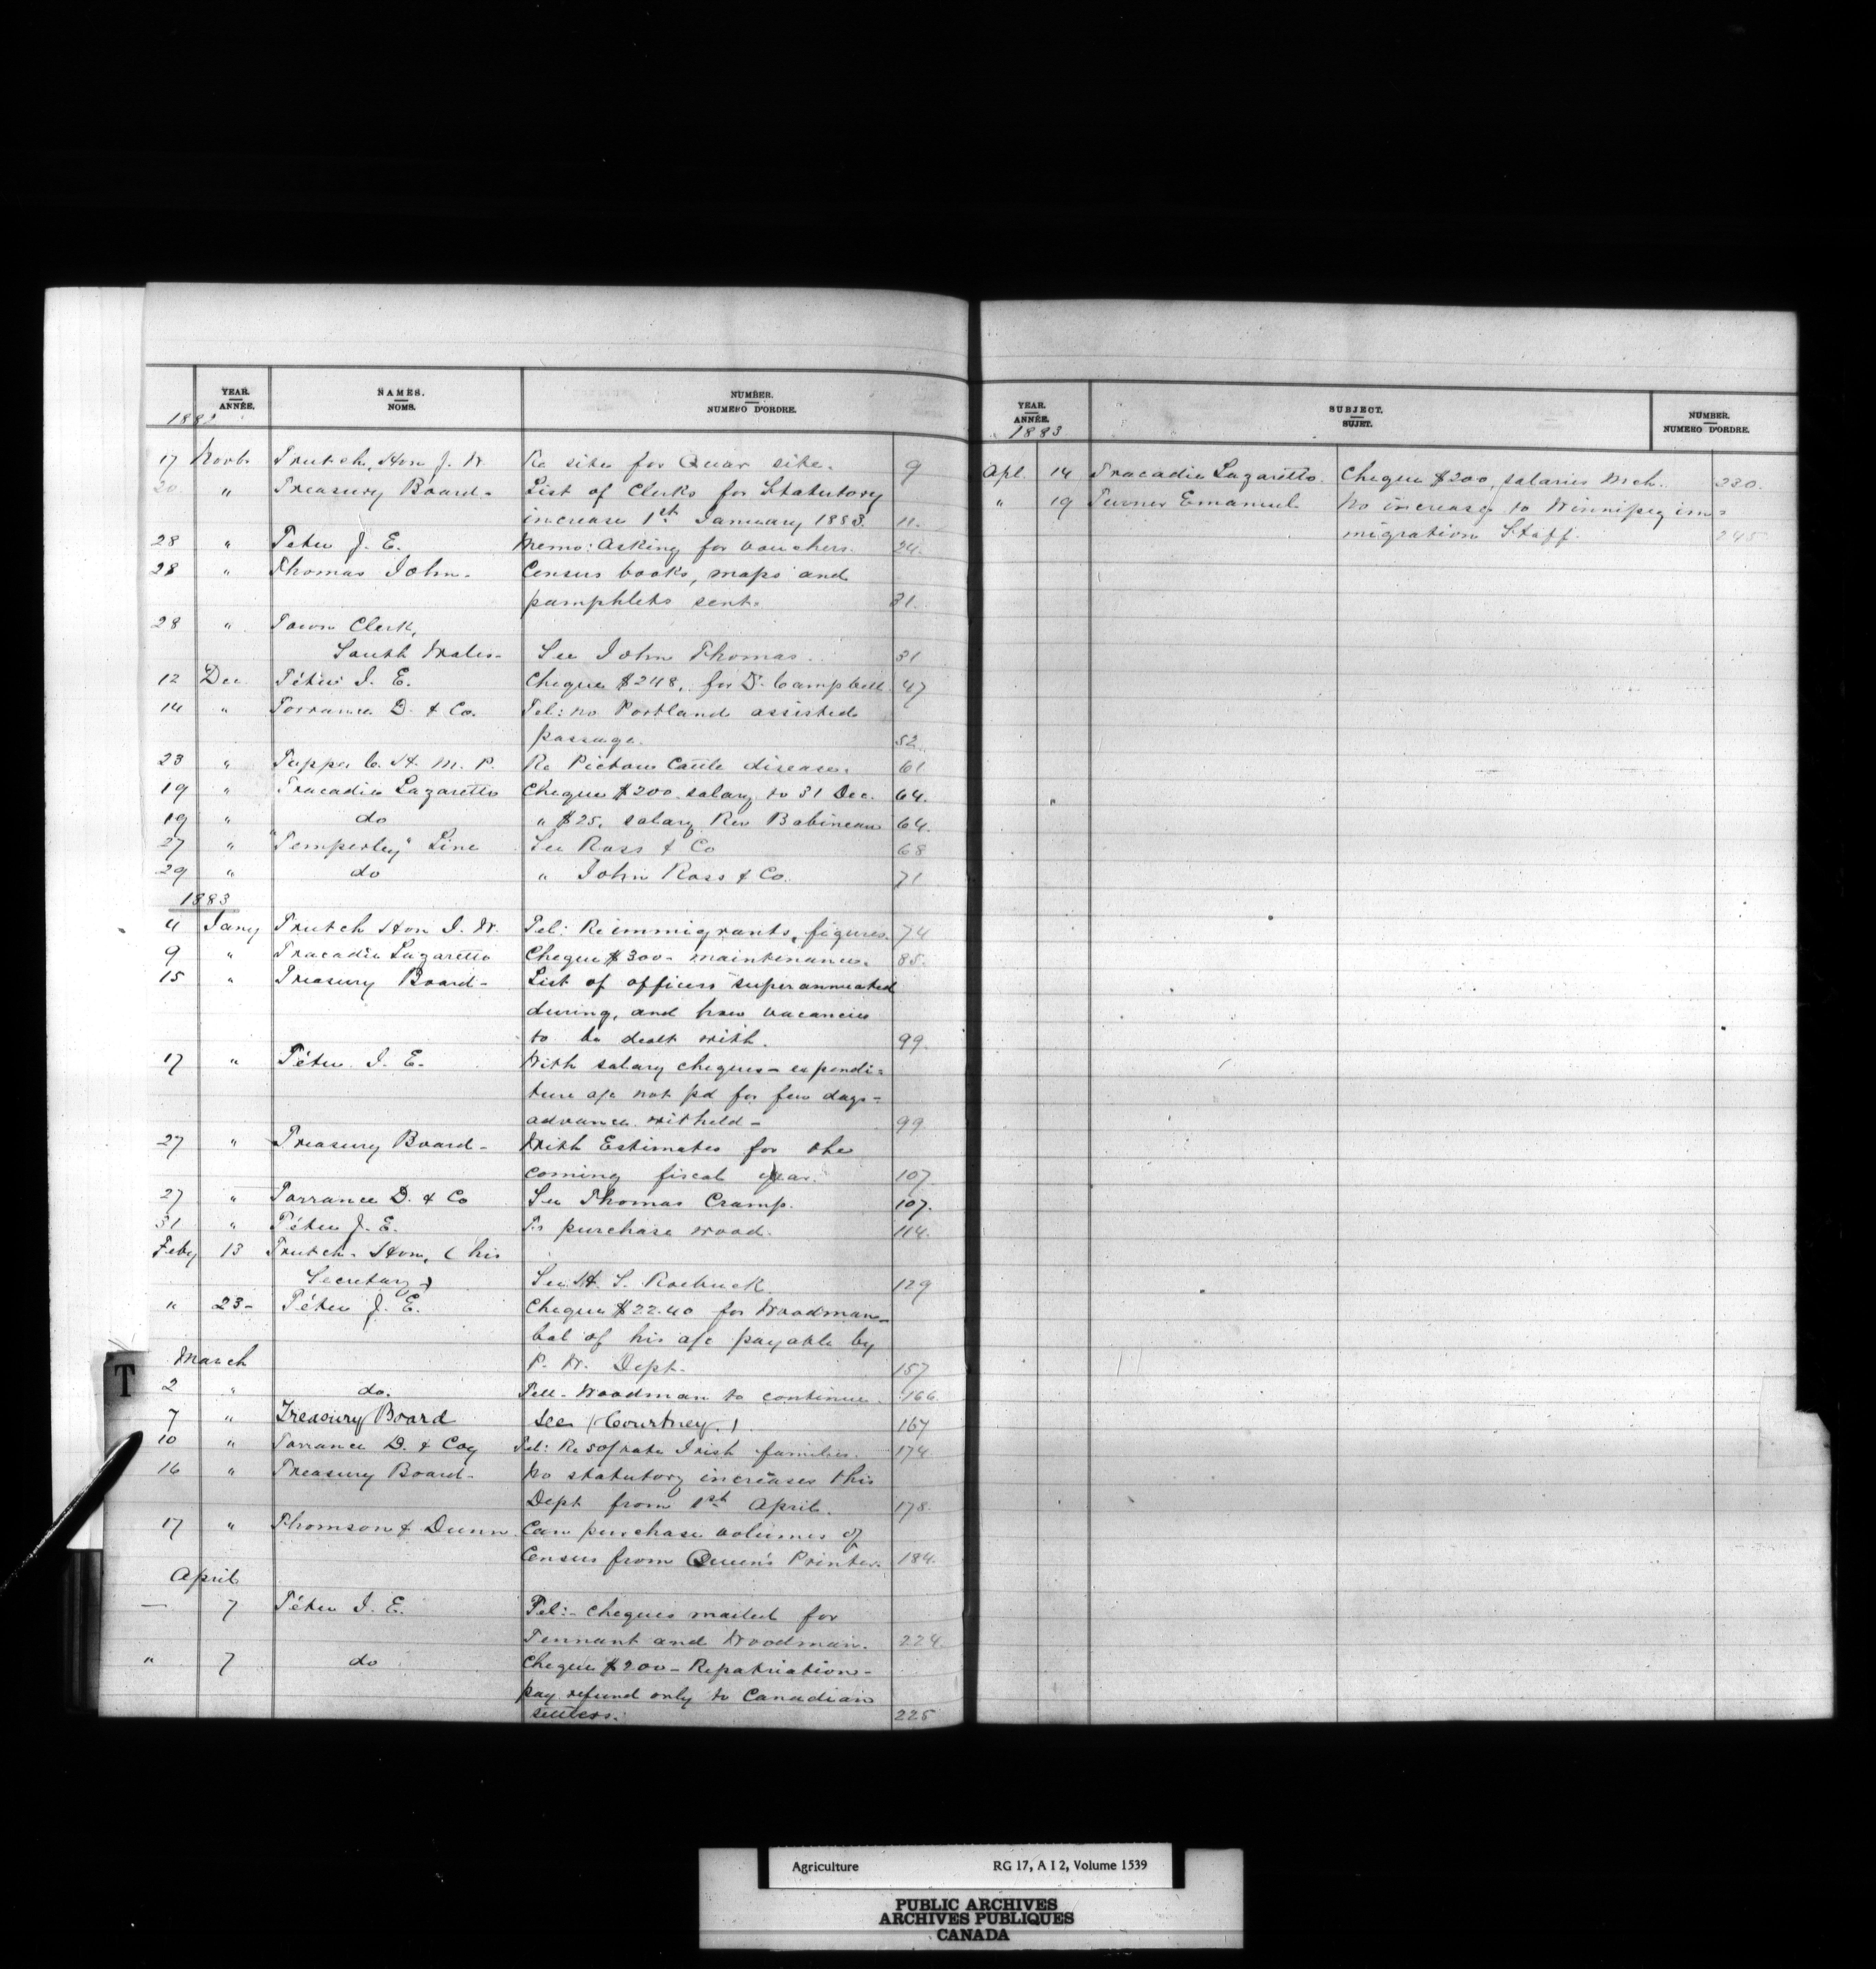 YEAR. NAMES. NUMBER.
ANNÉE. NOMS. NUMERO D'ORDRE.
1882
17 Novb. Trutch, Hon J. W. Re site for Quar site. 9
20 " Treasury Board - List of Clerks for Statutory
increase 1st January 1883. 11.
28 " Tétu J. E. Memo: Asking for vouchers. 24.
28 " Thomas John. Census books, maps and
pamphlets sent. 31.
28 " Town Clerk,
South Wales - See John Thomas. 31
12 Dec. Tétu J. E. Cheque $248. for D. Campbell. 47
14 " Torrance D. & Co. Tel: no Portland assisted
passage. 52.
23 " Tupper C. H. M. P. Re Pictou Cattle disease. 61
19 " Tracadie Lazaretto Cheque $200. salary to 31 Dec. 64.
19 " do " $25, salary Rev Babineau 64.
27 " "Temperley" Line See Ross & Co 68
29 " do " John Ross & Co. 71
1883
4 Jany Trutch Hon J. W. Tel: Re immigrants, figures. 74
9 " Tracadie Lazaretto Cheque $300 - maintenance. 85.
15 " Treasury Board - List of officers superannuated
during, and how vacancies
to be dealt with. 99.
17 " Tétu J. E. With salary cheques - expendi=
ture a/c not pd for few days -
advance witheld - 99
27 " Treasury Board - With Estimates for the
coming fiscal year. 107.
27 " Torrance D. & Co See Thomas Cramp. 107.
31 " Tétu J. E. To purchase wood. 114.
Feby 13 Trutch - Hon, (his
Secretary) See H. S. Roebuck. 129
" 23 - Tétu J. E. Cheque $22.40 for Woodman -
bal of his a/c payable by
March P. W. Dept. 157
2 " do. Tell - Woodman to continue. 166.
7 " Treasury Board See (Courtney.) 167
10 " Torrance D. & Coy Tel: Re 50 pate Irish families. 174
16 " Treasury Board - No statutory increases this
Dept from 1st April. 178.
17 " Thomson & Dunn. Can purchase volumes of
Census from Queen's Printer. 184.
April
— 7 Tétu J. E. Tel: - Cheques mailed for
Tennant and Woodman. 224.
" 7 do Cheque $200 - Repatriation -
pay refund only to Canadian
settlers. 225
YEAR. SUBJECT. NUMBER.
ANNÉE. SUJET. NUMERO D'ORDRE.
1883
Apl. 14 Tracadie Lazaretto. Cheque $200, salaries Mch. 230.
" 19 Turner Emanuel. No increase to Winnipeg im=
migration Staff. 245
T
Agriculture RG 17, A I 2, Volume 1539
PUBLIC ARCHIVES
ARCHIVES PUBLIQUES
CANADA